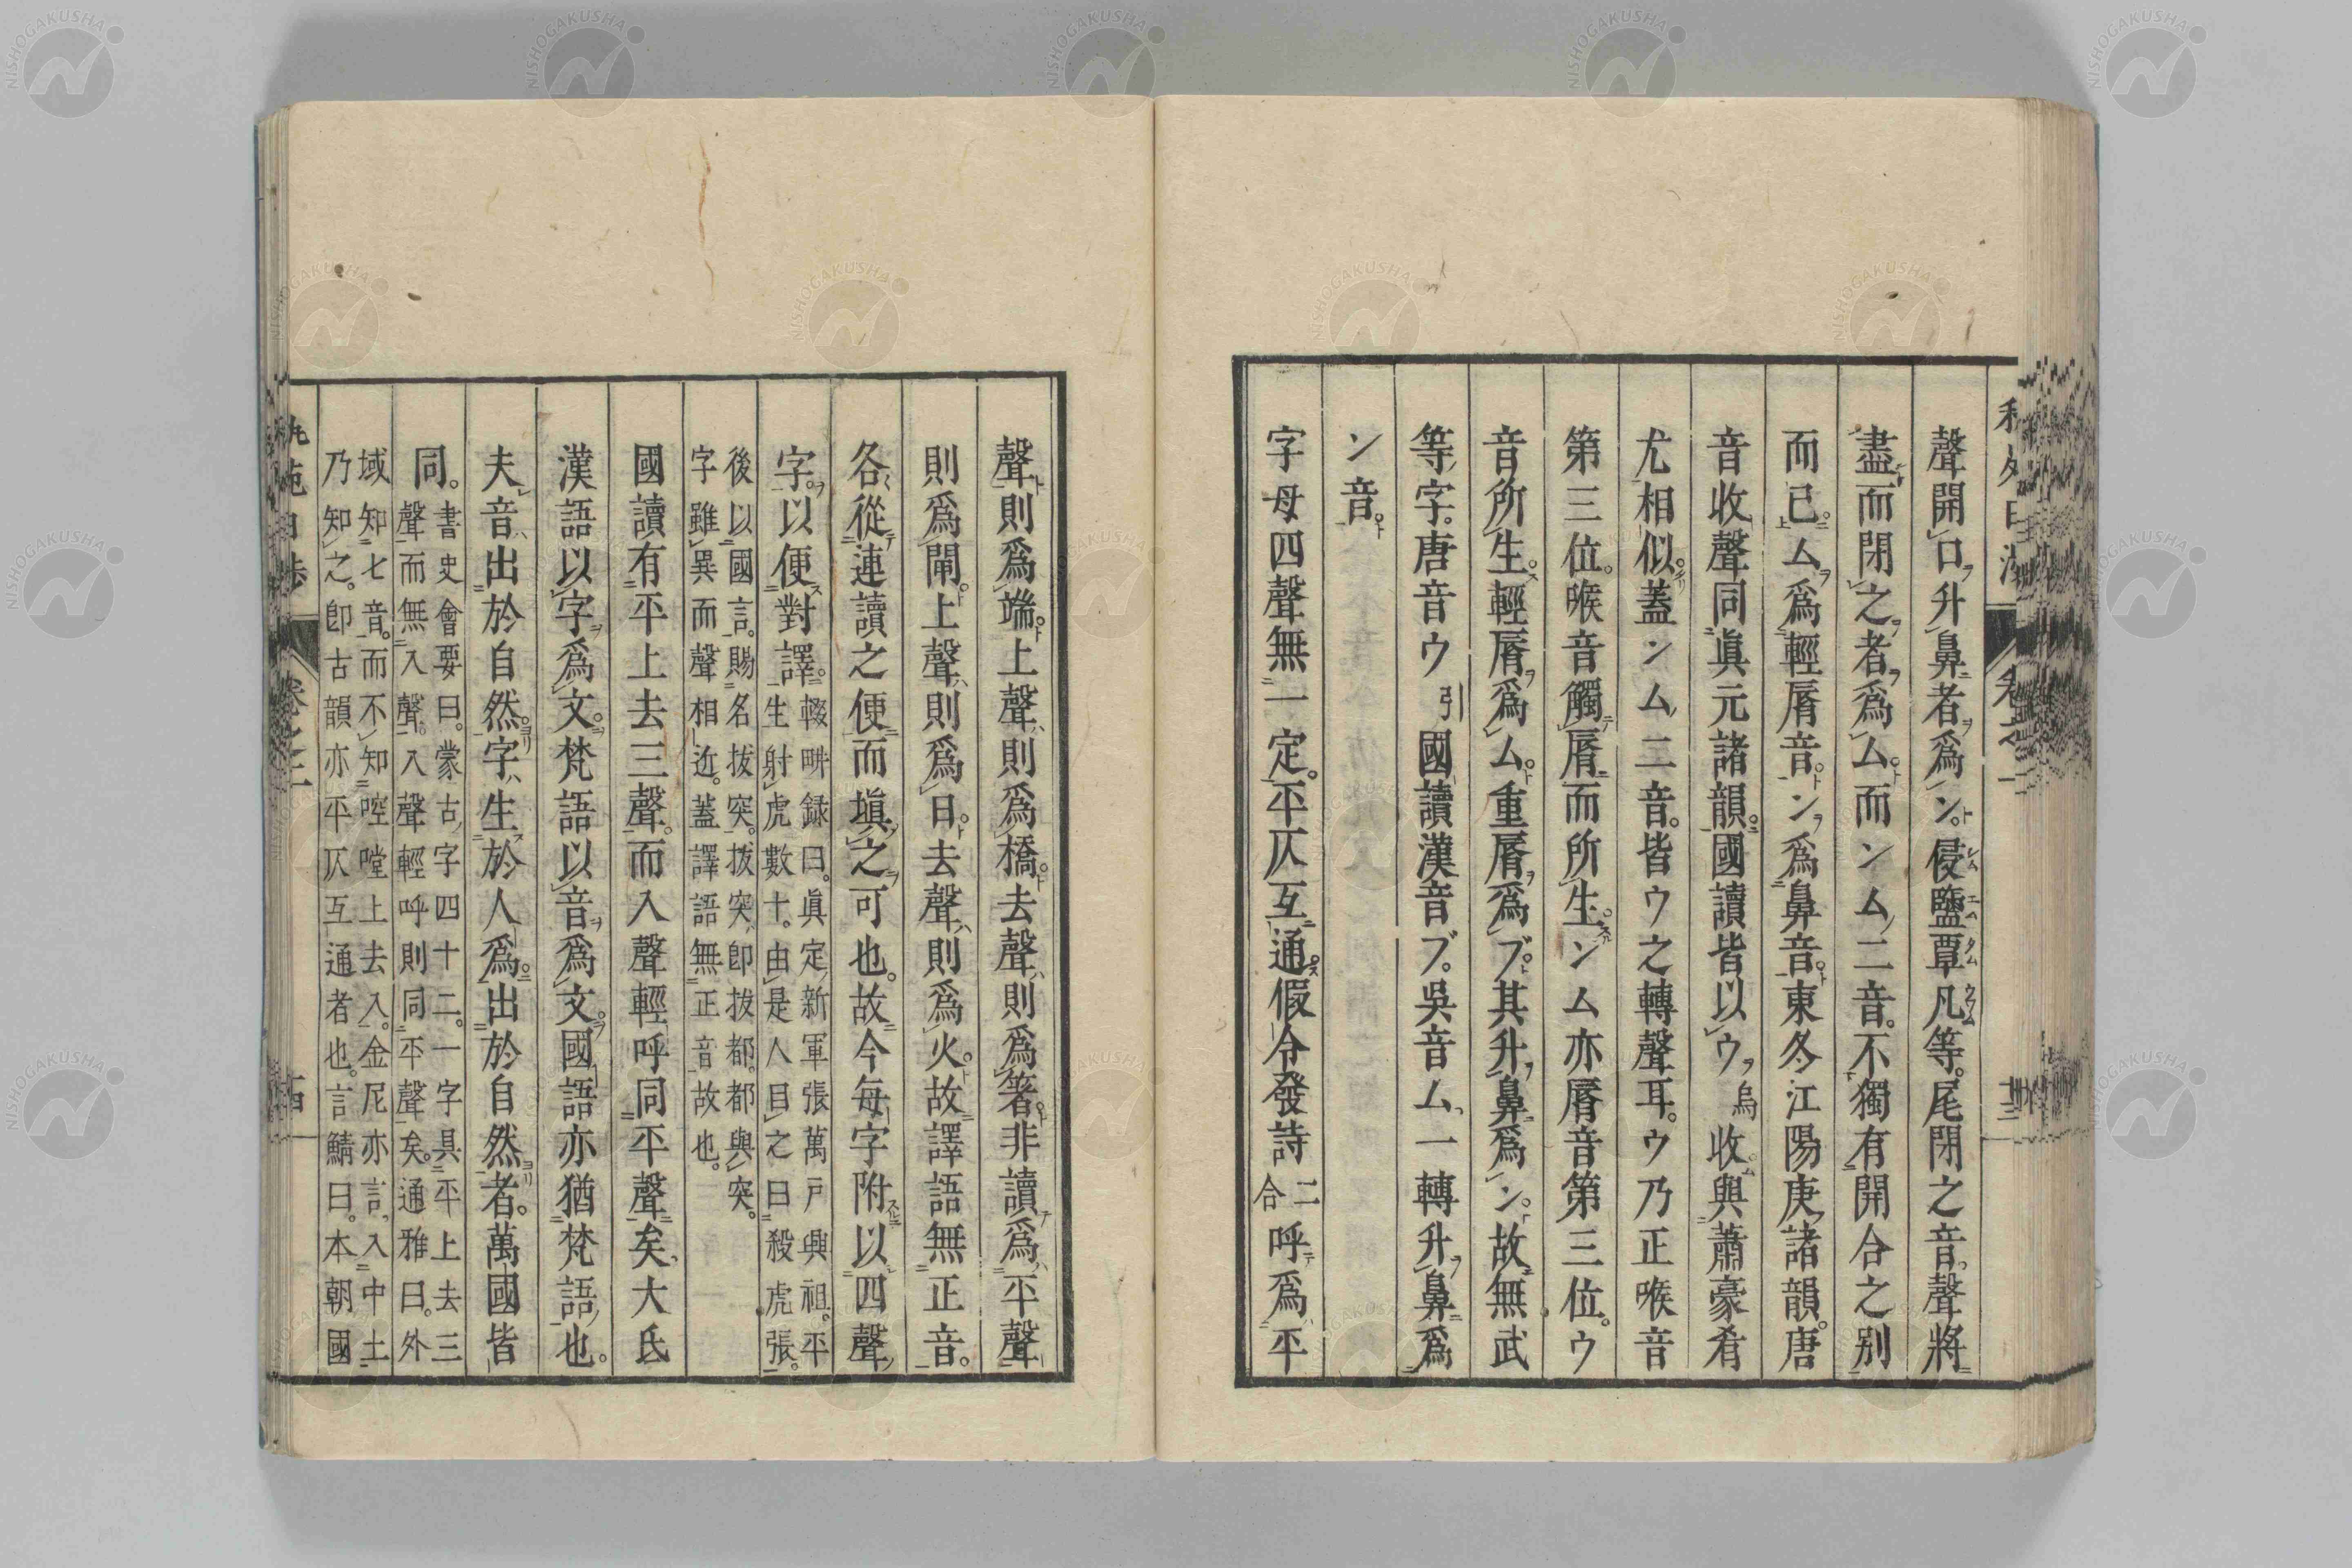 聲開口升鼻者爲ン。侵鹽覃凡等。尾閉之音。聲將
盡而閉之者爲ム。而ンム二音。不獨有開合之別
而已。ム爲輕脣音。ン爲鼻音。東冬江陽庚諸韻。唐
音收聲同眞元諸韻。國讀皆以ウ烏收。與蕭豪肴
尤相似。蓋ンム二音。皆ウ之轉聲耳。ウ乃正喉音
第三位。喉音觸脣而所生。ンム亦脣音第三位。ウ
音所生。輕脣爲ム。重脣爲ブ。其升鼻爲ン。故無武
等字。唐音ウ引國讀漢音ブ。吳音ム、一轉升鼻爲
ン音。
字母四聲無一定。平仄互通。假令發詩二合呼爲平
聲則爲端。上聲則爲橋。去聲則爲箸。非讀爲平聲
則爲閘。上聲則爲日。去聲則爲火。故譯語無正音。
各從連讀之便而塡之可也。故今每字附以四聲
字。以便對譯。輟畊録曰。眞定新軍張萬戸興祖。平
生射虎數十。由是人目之曰殺虎張。
後以國言。賜名拔突。拔突即拔都。都與突。
字雖異而聲相近。蓋譯語無正音故也。
國讀有平上去三聲。而入聲輕呼同平聲矣。大氐
漢語以字爲文。梵語以音爲文。國語亦猶梵語也。
夫音出於自然。字生於人爲。出於自然者。萬國皆
同。書史會要曰。蒙古字四十二。一字具平上去三
聲而無入聲。入聲輕呼則同平聲矣。通雅曰。外
域知七音。而不知啌嘡上去入。金尼亦言。入中土
乃知之。即古韻亦平仄互通者也。言鯖曰。本朝國
卷之三
十四
十三
NISHOGAKUSHA